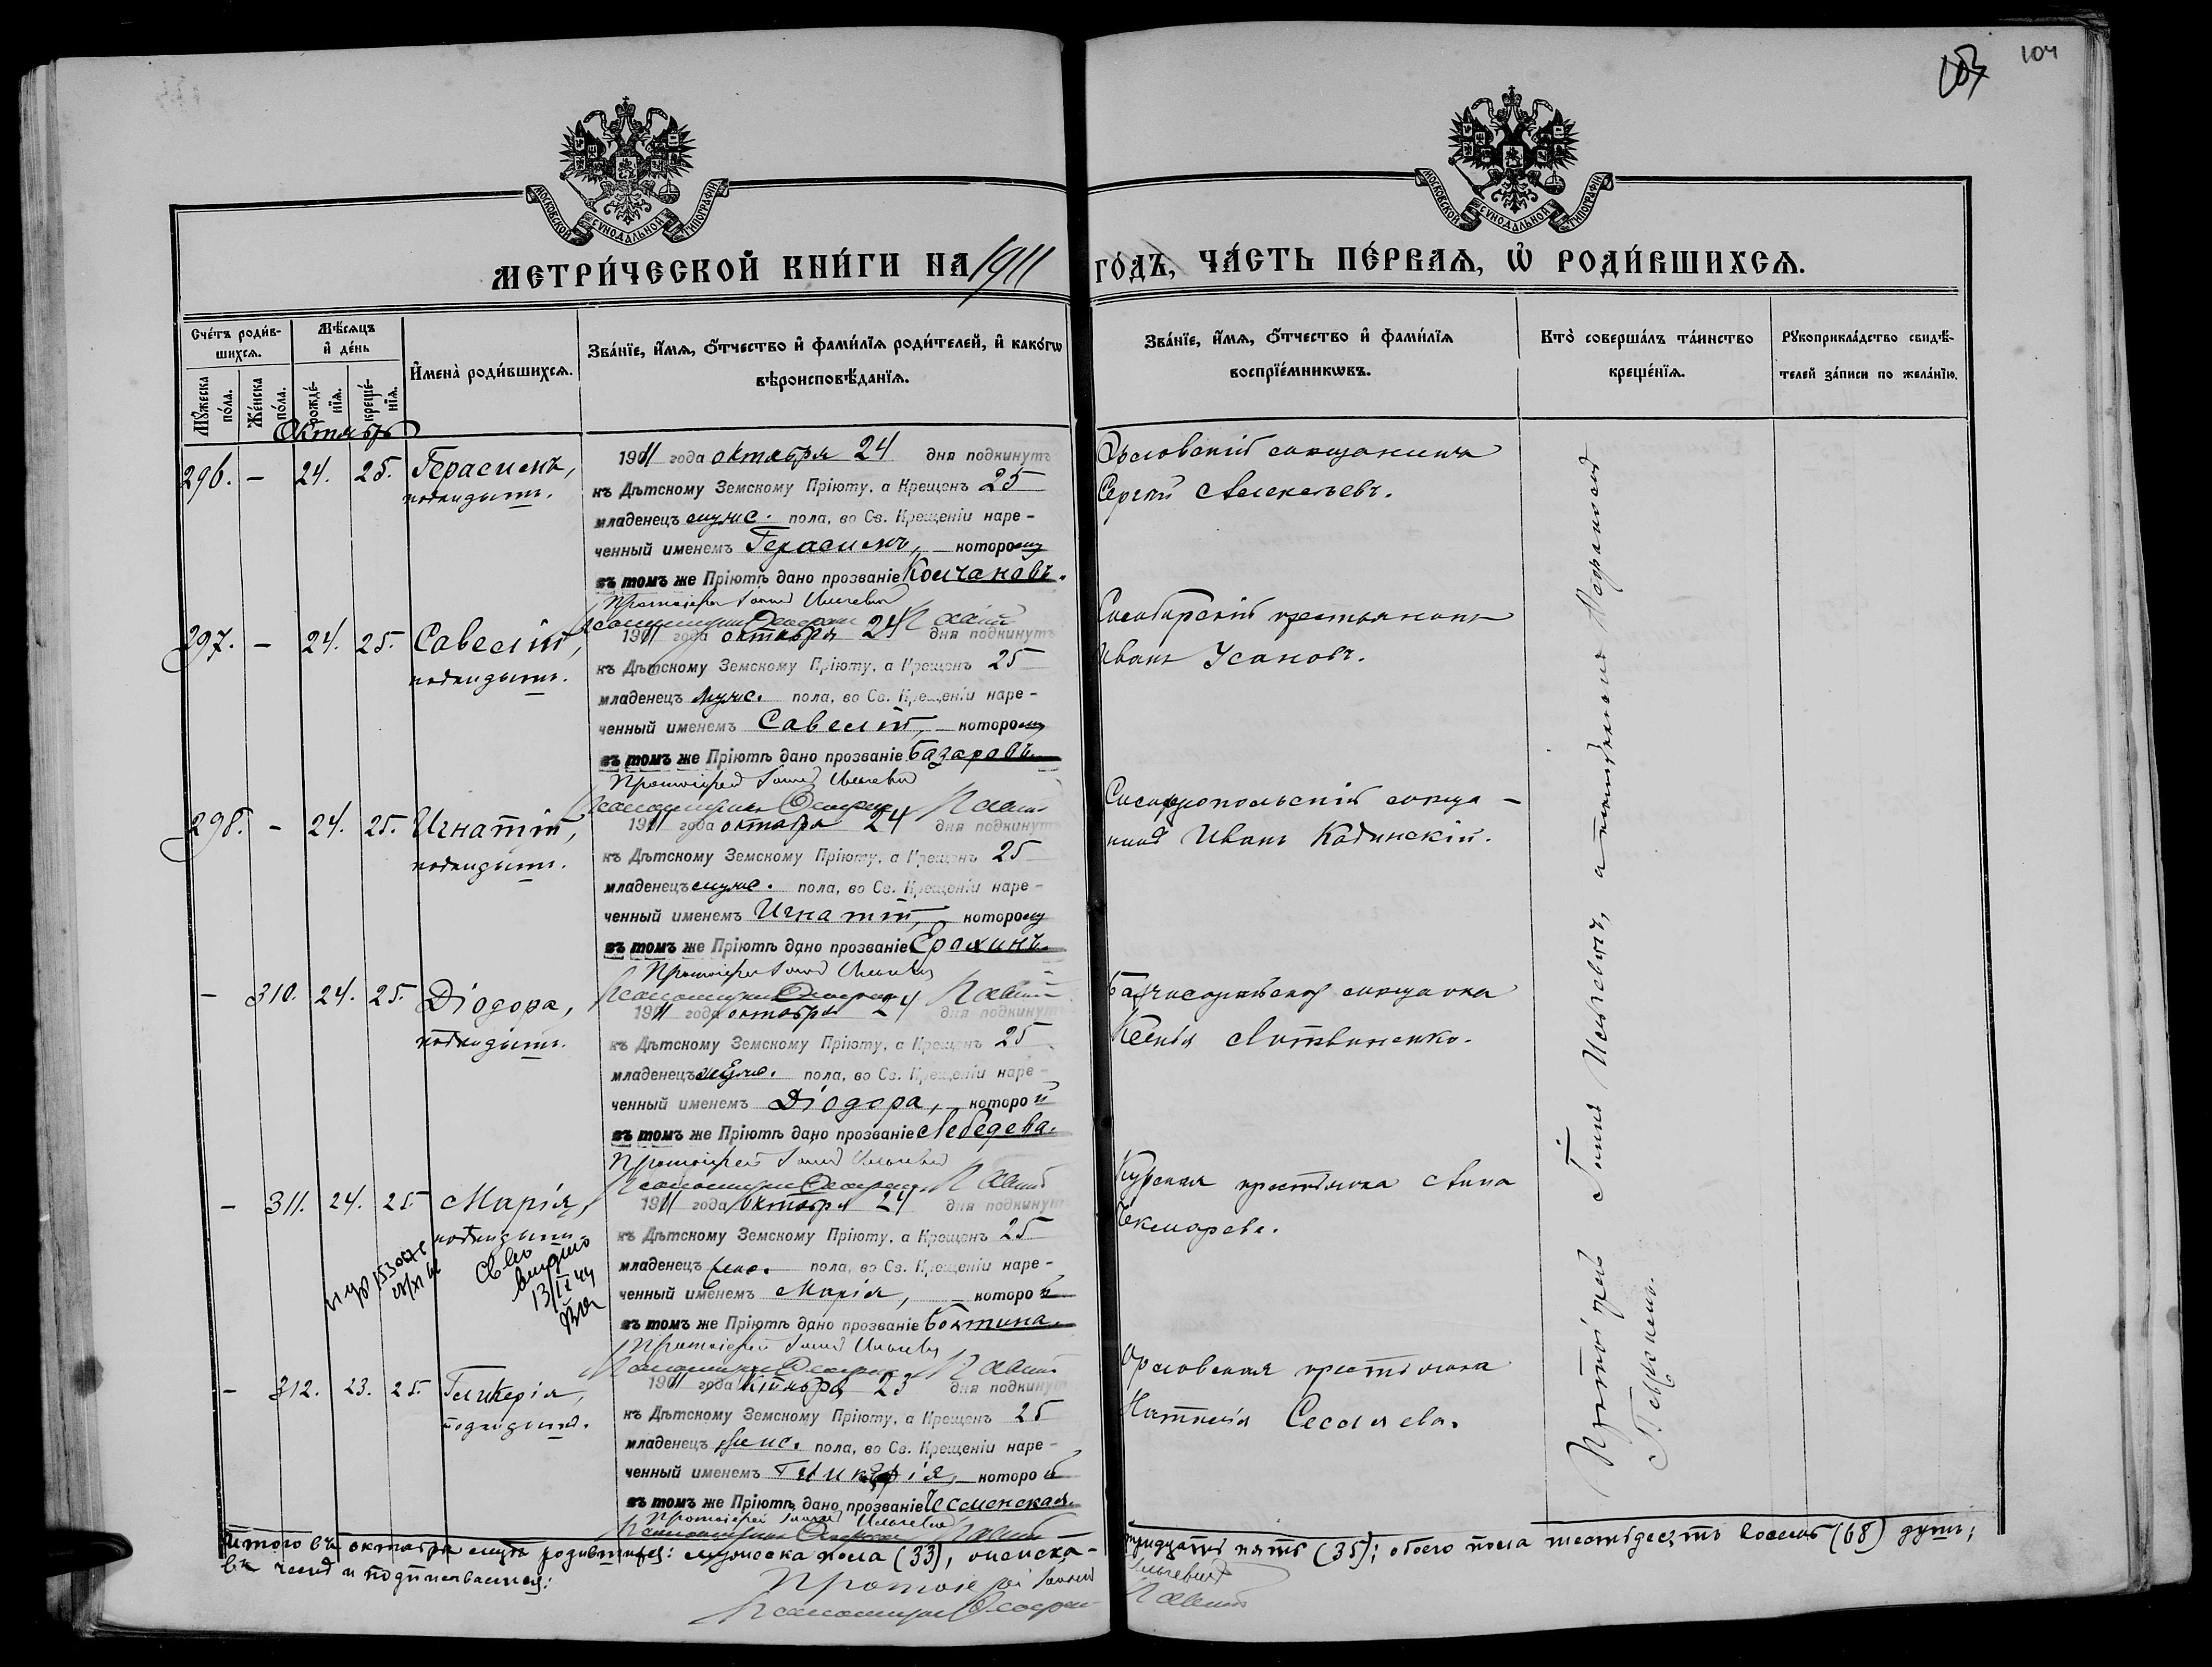 104
МОСКОВСКОЙ СѴНОДАЛЬНОЙ ТИПОГРАФІИ
МОСКОВСКОЙ СѴНОДАЛЬНОЙ ТИПОГРАФІИ
МЕТРИ́ЧЕСКОЙ КНИ́ГИ НА 1911 ГО́ДЪ, ЧА́СТЬ ПЕ́РВАѦ, Ѡ҆ РОДИ́ВШИХСѦ.
Сче́тъ роди́в-
шихсѧ.
Мꙋ́жеска по́ла.
Же́нска по́ла.
Мѣ́сѧцъ
и҆ де́нь
рожде́-
нїѧ.
креще́-
нїѧ.
И҆мена̀ роди́вшихсѧ.
Зва́нїе, и҆́мѧ, ѻ҆́тчество и҆ фами́лїѧ роди́телей, и҆ како́гѡ
вѣроисповѣ́данїѧ.
Зва́нїе, и҆́мѧ, ѻ҆́тчество и҆ фами́лїѧ
воспрїе́мникѡвъ.
Кто̀ соверша́лъ та́инство
креще́нїѧ.
Рꙋкоприкла́дство свидѣ́-
телей за́писи по жела́нїю.
Октябрь
296. – 24. 25. Герасимъ,
подкидышъ.
1911 года октября 24 дня подкинутъ
къ Дѣтскому Земскому Пріюту, а Крещенъ 25
младенецъ муж. пола, во Св. Крещеніи наре-
ченный именемъ Герасимъ, которому
въ томъ же Пріютѣ дано прозваніе Колчаковъ.
Протоіерей Іоаннъ Ильчевич
Сергій Алексѣевъ.
297. – 24. 25. Савелій,
подкидышъ.
1911 года октября 24 дня подкинутъ
къ Дѣтскому Земскому Пріюту, а Крещенъ 25
младенецъ муж. пола, во Св. Крещеніи наре-
ченный именемъ Савелій, которому
въ томъ же Пріютѣ дано прозваніе Базаровъ.
Протоіерей Іоаннъ Ильчевич
крестьянинъ
Иванъ Усановъ.
298. – 24. 25. Игнатій,
подкидышъ.
1911 года октября 24 дня подкинутъ
къ Дѣтскому Земскому Пріюту, а Крещенъ 25
младенецъ муж. пола, во Св. Крещеніи наре-
ченный именемъ Игнатій, которому
въ томъ же Пріютѣ дано прозваніе Ерохинъ.
Протоіерей Іоаннъ Ильчевич
Симферопольскій мѣща-
нинъ Иванъ Кадинскій.
– 310. 24. 25. Діодора,
подкидышъ.
1911 года октября 24 дня подкинутъ
къ Дѣтскому Земскому Пріюту, а Крещенъ 25
младенецъ пола, во Св. Крещеніи наре-
ченный именемъ Діодора, которой
въ томъ же Пріютѣ дано прозваніе Лебедева.
Протоіерей Іоаннъ Ильчевич
Бахчисарайская мѣщанка
Ксенія Литвиненко.
– 311. 24. 25 Марія,
подкидышъ
13/IX 44
1911 года октября 24 дня подкинутъ
къ Дѣтскому Земскому Пріюту, а Крещенъ 25
младенецъ жен. пола, во Св. Крещеніи наре-
ченный именемъ Марія, которой
въ томъ же Пріютѣ дано прозваніе Бахтина.
Протоіерей Іоаннъ Ильчевич
Курская крестьянка Анна
Чекмарева.
– 312. 23. 25. Гликерія,
подкидышъ.
1911 года октября 23 дня подкинутъ
къ Дѣтскому Земскому Пріюту, а Крещенъ 25
младенецъ женс. пола, во Св. Крещеніи наре-
ченный именемъ Гликерія, которой
въ томъ же Пріютѣ дано прозваніе Чесменская.
Протоіерей Іоаннъ Ильчевич
Орловская крестьянка
Наталія Сесляева.
Протоіерей Іоаннъ Ильчевичъ, а
Итого въ октябрѣ родившихся: мужеска пола (33), женска – тридцать пять (35); обоего пола шестьдесятъ восемь (68) душъ;
въ чемъ и подписываемся:
Протоіерей Іоаннъ Ильчевич